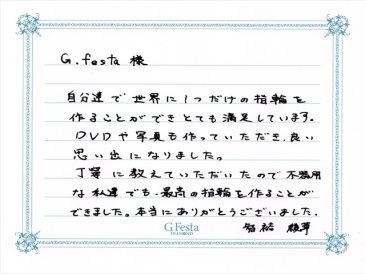 G.festa 様
自分達で世界に1つだけの指輪を
作ることができとても満足しています。
DVDや写真も作っていただき、良い
思い出になりました。
丁寧に教えていただいたので不器用
な私達でも、最高の指輪を作ることが
できました。本当にありがとうございました。
G.Festa
DIAMOND